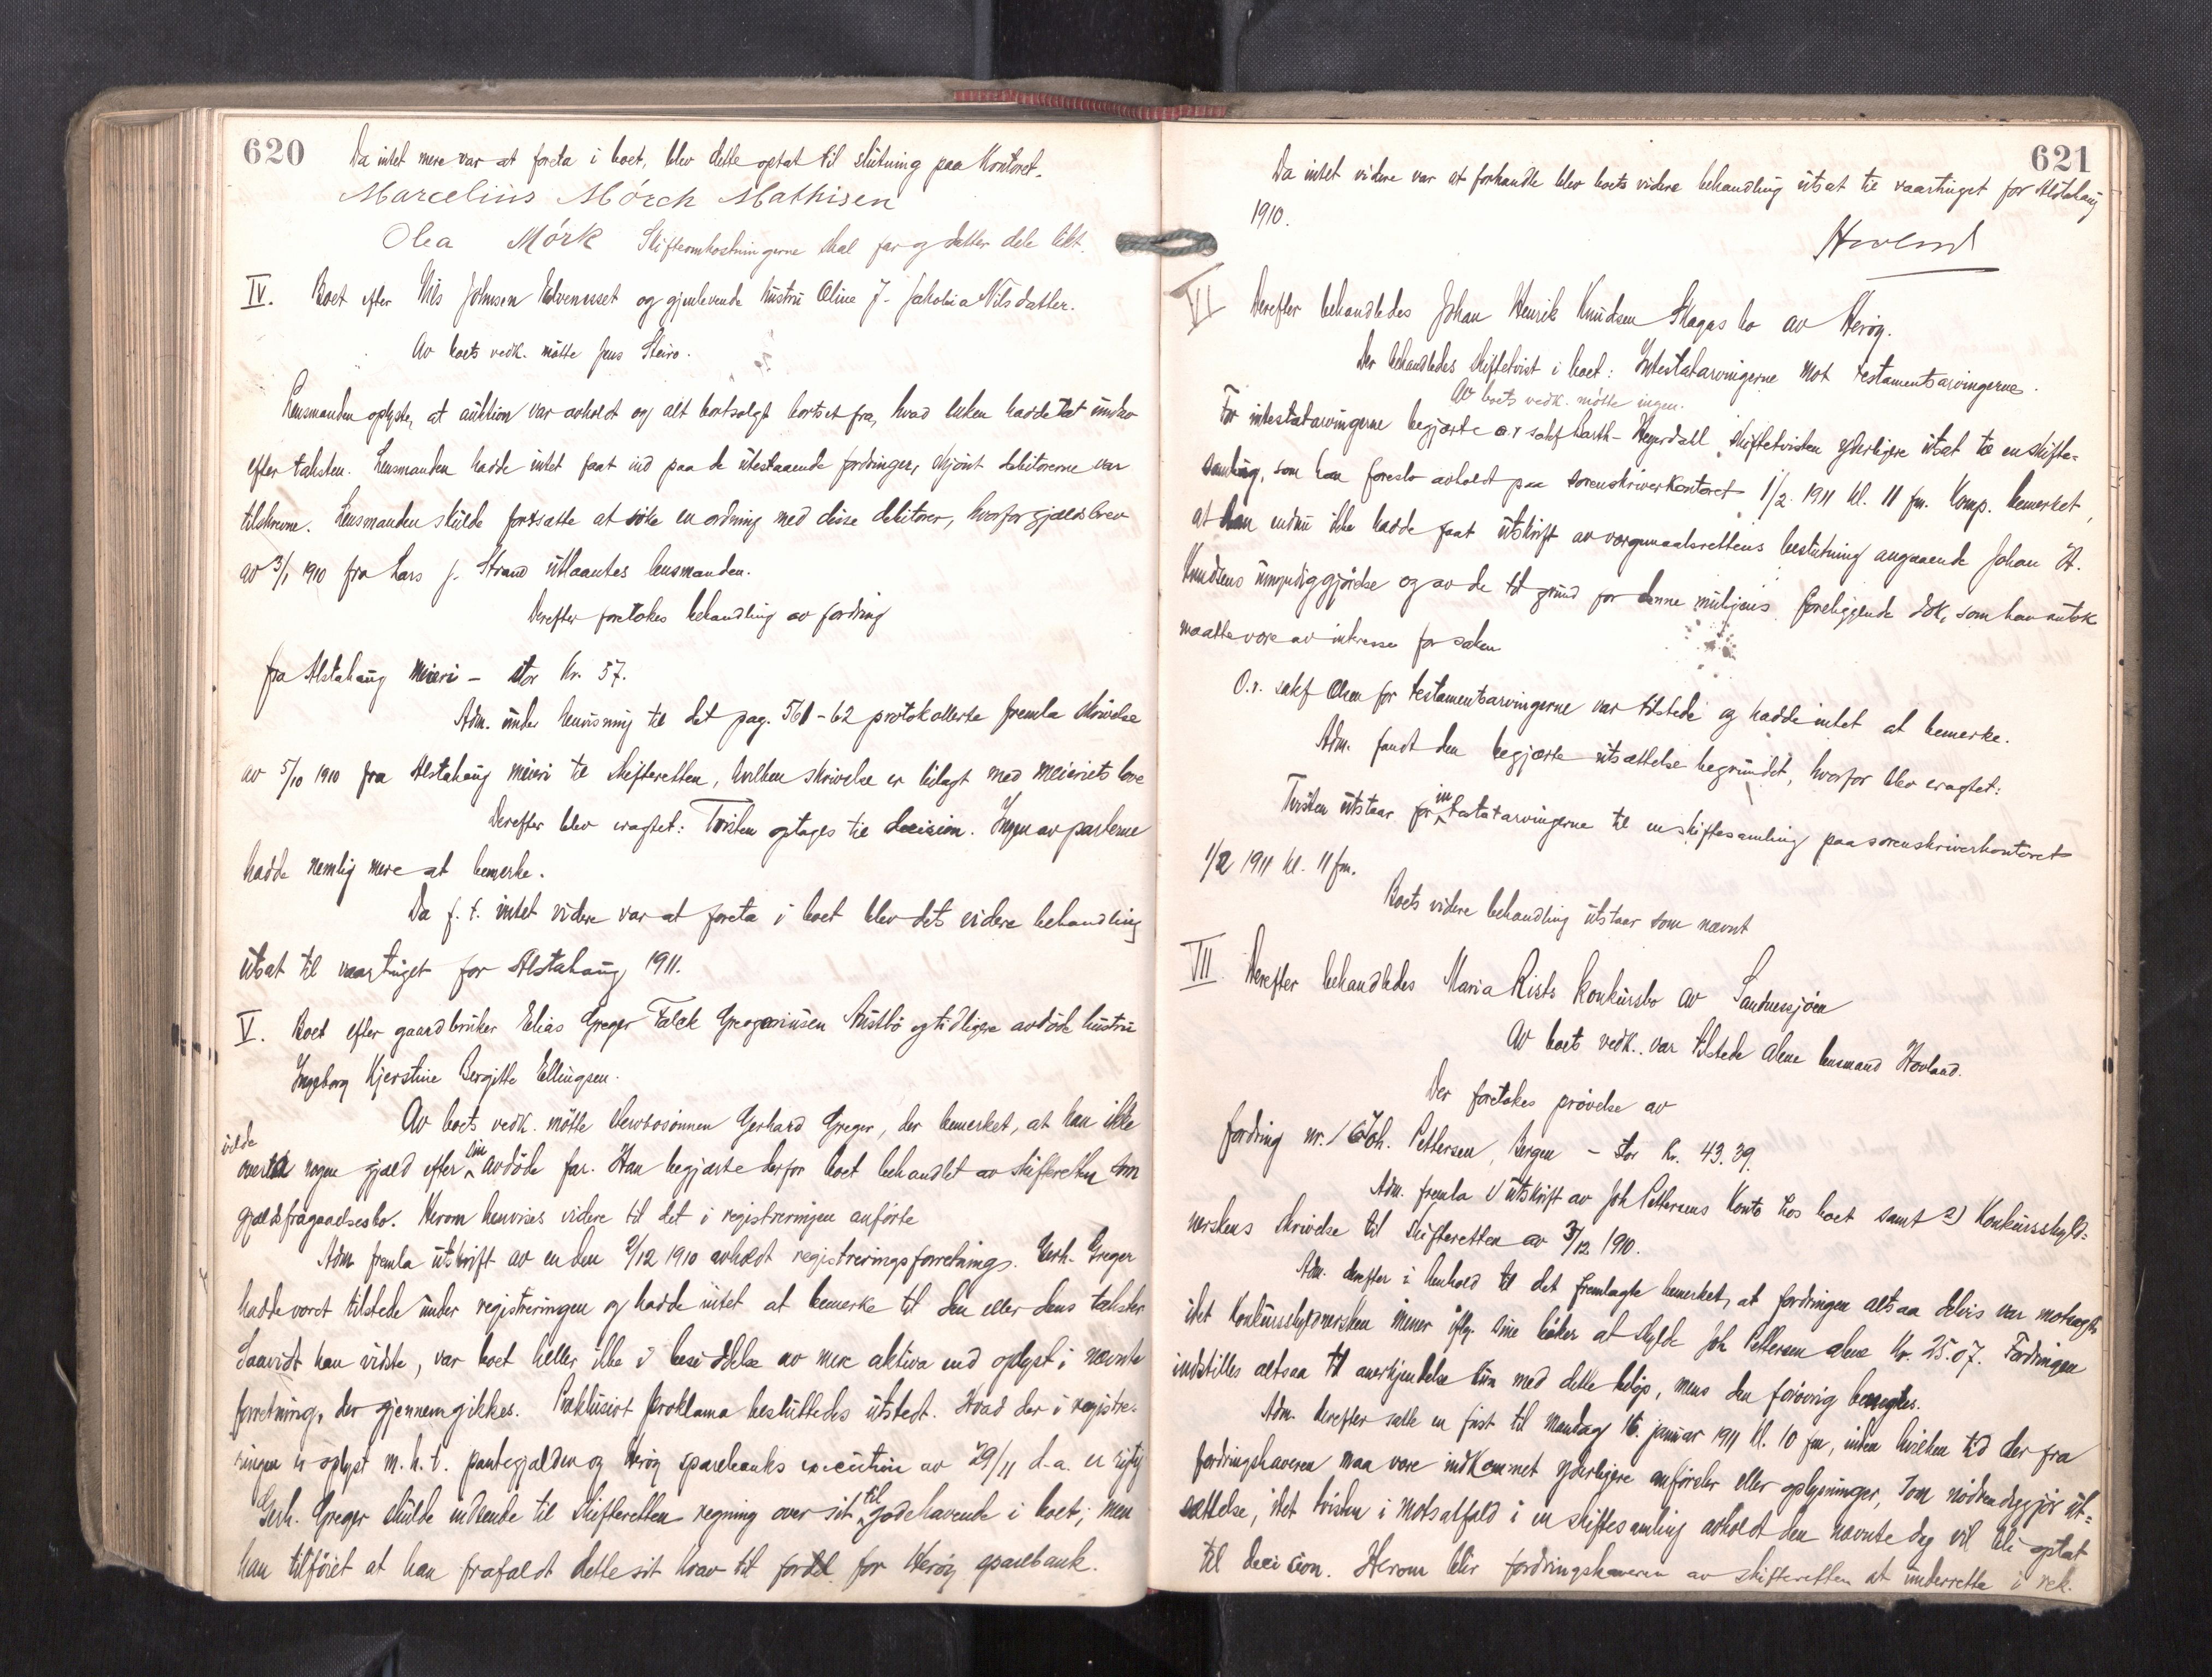 620
Da intet mere var at foreta i boet, blev dette optat til slutning paa Kontoret.
Marcelius Mörch Mathisen
Olea Mörk Skifteomkostningerne skal far og datter dele likt.
IV. Boet efter Nils Johnsen og gjenlevende hustru Oline J- Jakobia Nilsdatter.
Av boets vedk. mötte Jens Steiro.
Lensmanden oplyste, at auktion var avholdt og alt bortsolgt bortset fra, hvad enken hadde tat under
efter taksten. Lensmanden hadde intet faat ind paa de utestaaende fordringer, skjönt debitorerne var
tilskrevne. Lensmanden skulde fortsætte at söke en ordning med disse debitorer, hvorfor gjældsbrev
av 3/1 1910 fra Lars J. Strand utlaantes lensmanden.
Derefter foretokes behandling av fordring
fra Alstahaug meieri – stor Kr. 57.
Adm. under henvisning til det pag. 561-62 protokollerte fremla skrivelse
av 5/10 1910 fra Alstahaug meieri til skifteretten, hvilken skrivelse er bilagt med meieriets love
Derefter blev eragtet: Tvisten optages til decision. Ingen av parterne
hadde nemlig mere at bemerke.
Da f. t. intet videre var at foreta i boet blev dets videre behandling
utsat til vaartinget for Alstahaug 1911.
V. Boet efter gaardbruker Elias Greger Falck Gregoriusen Austbö og tidligere avdöde hustru
Ingeborg Kjerstine Bergitte Ellingsen.
Av boets vedk. mötte stervbosönnen Gerhard Greger, der bemerket, at han ikke
vilde
overta nogen gjæld efter sin avdöde far. Han begjærte derfor boet behandlet av skifteretten som
gjældsfragaaelsesbo. Herom henvises videre til det i registreringen anförte
Adm. fremla utskrift av en den 9/12 1910 avholdt registreringsforretning. Gerh. Greger
hadde været tilstede under registreringen og hadde intet at bemerke til den eller dens takster
Saavidt han vidste, var boet heller ikke i besiddelse av mere aktiva end oplyst i nævnte
forretning, der gjennemgikkes. Præklusivt proklama besluttedes utstedt. Hvad der i registre-
ringen er oplyst m.h.t. pantegjælden og Heröy sparebanks execution av 29/11 d.a. er rigtig
Gerh. Greger skulde indsende til skifteretten regning over sit til godehavende i boet; men
han tilföiet at han frafaldt dette sit krav til fordel for Heröy sparebank.
621
Da intet videre var at forhandle blev boets videre behandling utsat til vaartinget for Alstahaug
1910.
Hovland
VI Derefter behandledes Johan Henrik Knudsen Skagas bo av Heröy.
Der behandledes skiftetvist i boet: Intestatarvingerne mot testamentsarvingerne.
Av boets vedk. mötte ingen.
For intestatarvingerne begjærte o.r sakf Barth-Heyerdahl skiftetvisten yderligere utsat til en skifte-
samling, som han foreslo avholdt paa sorenskriverkontoret 1/2 1911 kl. 11 fm. Komp. bemerket,
at han endnu ikke hadde faat utskrift av vergemaalsrettens beslutning angaaende Johan H.
Knudsens umyndiggjörelse og av de til grund for denne foreliggende dok, som han antok
maatte være av interesse for saken
O.r. sakf Olsen for testamentsarvingerne var tilstede og hadde intet at bemerke.
Adm. fandt den begjærte utsættelse begrundet, hvorfor blev eragtet:
Tvisten utstaar for intestatarvingerne til en skiftesamling paa sorenskriverkontoret
1/2 1911 kl. 11 fm.
Boets videre behandling utstaar som nævnt
VII. Derefter behandledes Maria Rists konkursbo av Sandnessjöen
Av boets vedk. var tilstede alene lensmand Hovland.
Der foretokes prövelse av
fordring nr. 16 Joh. Pettersen, Bergen – stor Kr. 43.39.
Adm. fremla 1) utskrift av Joh Pettersens Konto hos boet samt 2) Konkursskyld-
nerskens skrivelse til skifteretten av 3/12 1910.
Adm. derefter i henhold til det fremlagte bemerket, at fordringen altsaa delvis var motsagt,
idet konkursskyldnersken mener iflg. sine böker at skylde Joh Pettersen alene Kr. 25.07. Fordringen
indstilles altsaa til anerkjendelse kun med dette belöp, mens den forövrig benegtes.
Adm. derefter satte en frist til Mandag 16. januar 1911 kl. 10 fm, inden hvilken tid der fra
fordringshaveren maa være indkommet yderligere anförsler eller oplysninger, som nödvendiggjör ut-
sættelse, idet tvisten i motsatfald i en skiftesamling avholdt den nævnte dag vil bli optat
til decision. Herom blir fordringshaveren av skifteretten at underrette i rek.